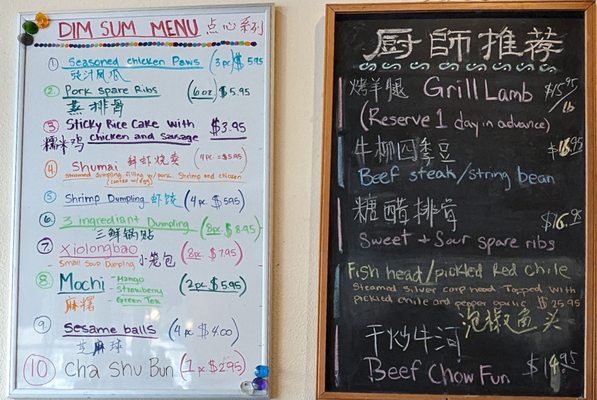 DIM SUM MENU 点心系列
① Seasoned Chicken Paws (3pc) $5.95
豉汁凤爪
② Pork Spare Ribs (6oz) $5.95
蒸排骨
③ Sticky Rice Cake with $3.95
糯米鸡 chicken and Sausage
④ Shumai 鲜虾烧卖 (4pc = $5.95)
steamed dumpling filling w/ pork Shrimp and chicken
⑤ Shrimp Dumpling 虾饺 (4pc $5.95)
⑥ 3 ingrediant Dumpling (8pc $8.95)
三鲜锅贴
⑦ Xiolongbao 小笼包 (8pc $7.95)
- Small Soup Dumpling
⑧ Mochi - Mango (2pc $5.95)
- Strawberry
麻糬 - Green Tea
⑨ Sesame balls (4pc $4.00)
芝麻球
⑩ Cha Shu Bun (1pc $2.95)
厨師推荐
烤羊腿 Grill Lamb $15.95 lb
(Reserve 1 day in advance)
牛柳四季豆 $16.95
Beef steak/string bean
糖醋排骨 $16.95
Sweet + Sour spare ribs
Fish head/pickled Red Chile
Steamed silver carp head Topped with
pickled chile and pepper garlic $25.95
泡椒鱼头
干炒牛河 $14.95
Beef Chow Fun